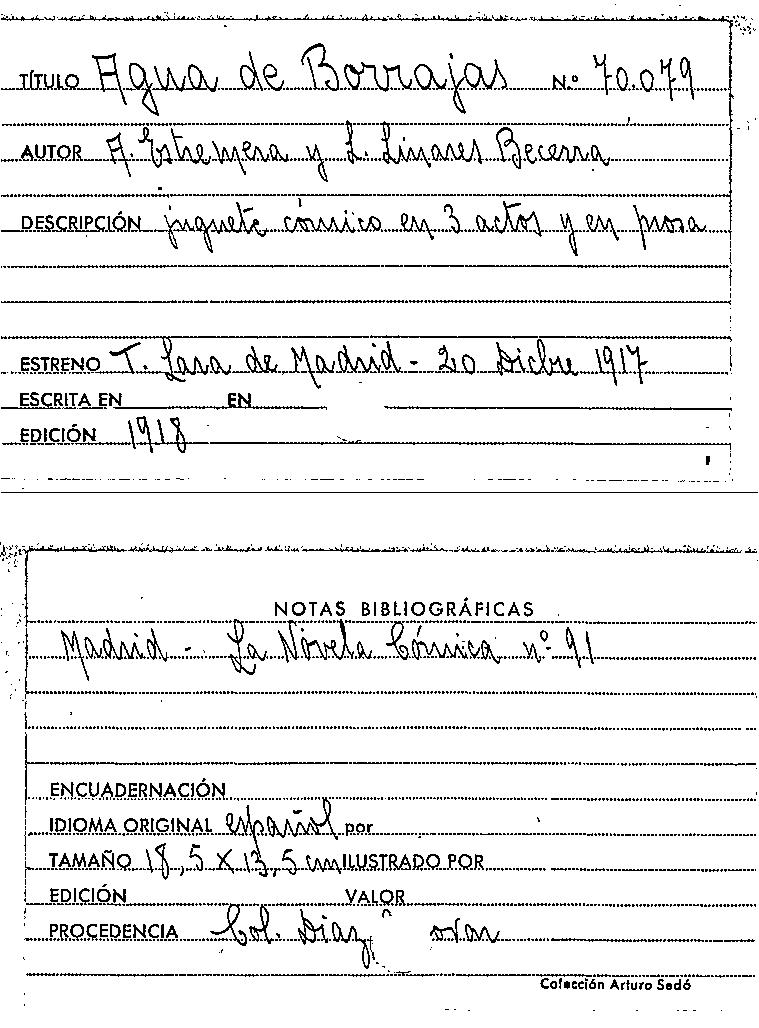 TÍTULO Agua de Borrajas N.º 70.079
AUTOR A. Estremera y L. Linares Becerra
DESCRIPCIÓN juguete cómico en 3 actos y en prosa
ESTRENO T. Lara de Madrid - 20 Dicbre 1917
ESCRITA EN EN
EDICIÓN 1918
NOTAS BIBLIOGRÁFICAS
Madrid - La Novela Cómica nº 91
ENCUADERNACIÓN
IDIOMA ORIGINAL español por
TAMAÑO 18,5 X 13,5 cm ILUSTRADO POR
EDICIÓN VALOR
PROCEDENCIA Col. Diaz
Colección Arturo Sedó